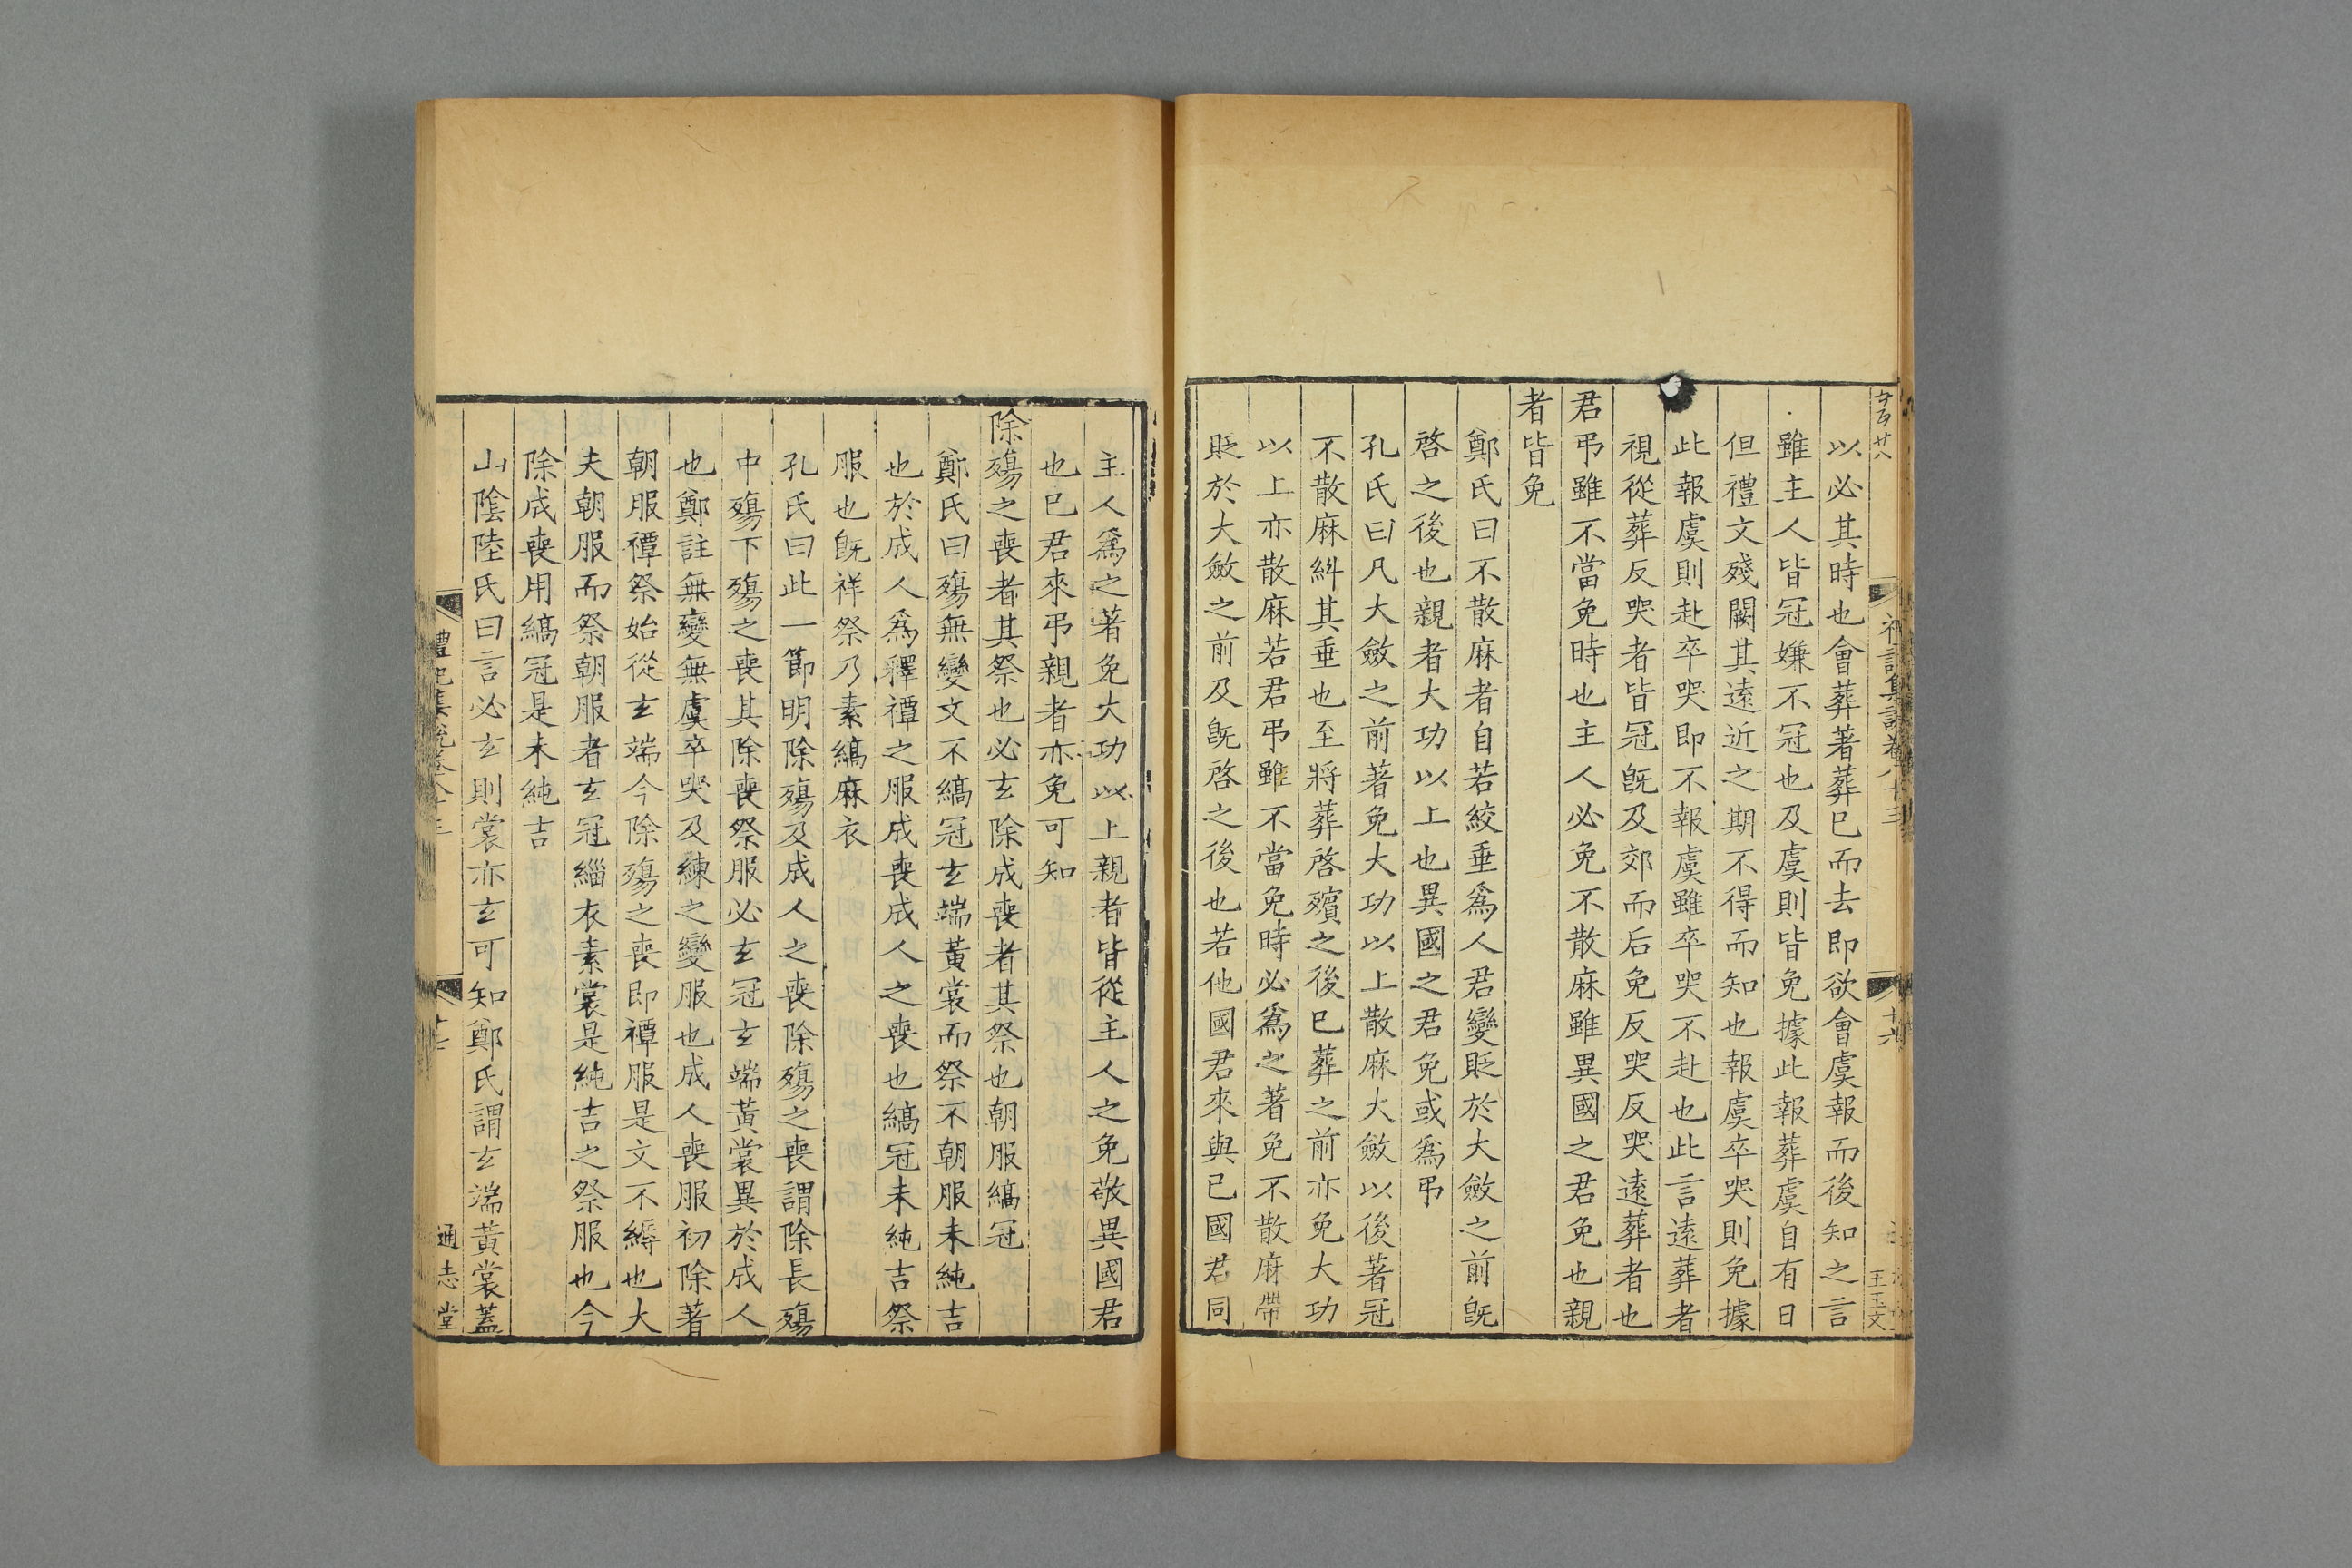 以必其時也會葬著葬已而去即欲會虞報而後知之言
雖主人皆冠嫌不冠也及虞則皆免據此報葬虞自有日
但禮文殘闕其遠近之期不得而知也報虞卒哭則免據
此報虞則赴卒哭即不報虞雖卒哭不赴也此言遠葬者
視從葬反哭者皆冠旣及郊而后免反哭反哭遠葬者也
君弔雖不當免時也主人必免不散麻雖異國之君免也親
者皆免
鄭氏曰不散麻者自若絞垂爲人君變貶於大斂之前旣
啓之後也親者大功以上也異國之君免或爲弔
孔氏曰凡大斂之前著免大功以上散麻大斂以後著冠
不散麻糾其垂也至將葬啓殯之後已葬之前亦免大功
以上亦散麻若君弔雖不當免時必爲之著免不散麻帶
貶於大斂之前及旣啓之後也若他國君來與已國君同
主人爲之著免大功以上親者皆從主人之免敬異國君
也已君來弔親者亦免可知
除殤之喪者其祭也必玄除成喪者其祭也朝服縞冠
鄭氏曰殤無變文不縞冠玄端黃裳而祭不朝服未純吉
也於成人爲釋禫之服成喪成人之喪也縞冠未純吉祭
服也旣祥祭乃素縞麻衣
孔氏曰此一節明除殤及成人之喪除殤之喪謂除長殤
中殤下殤之喪其除喪祭服必玄冠玄端黃裳異於成人
也鄭註無變無虞卒哭及練之變服也成人喪服初除著
朝服禫祭始從玄端今除殤之喪即禫服是文不縟也大
夫朝服而祭朝服者玄冠緇衣素裳是純吉之祭服也今
除成喪用縞冠是未純吉
山陰陸氏曰言必玄則裳亦玄可知鄭氏謂玄端黃裳蓋
禮記集說卷八十三
通志堂